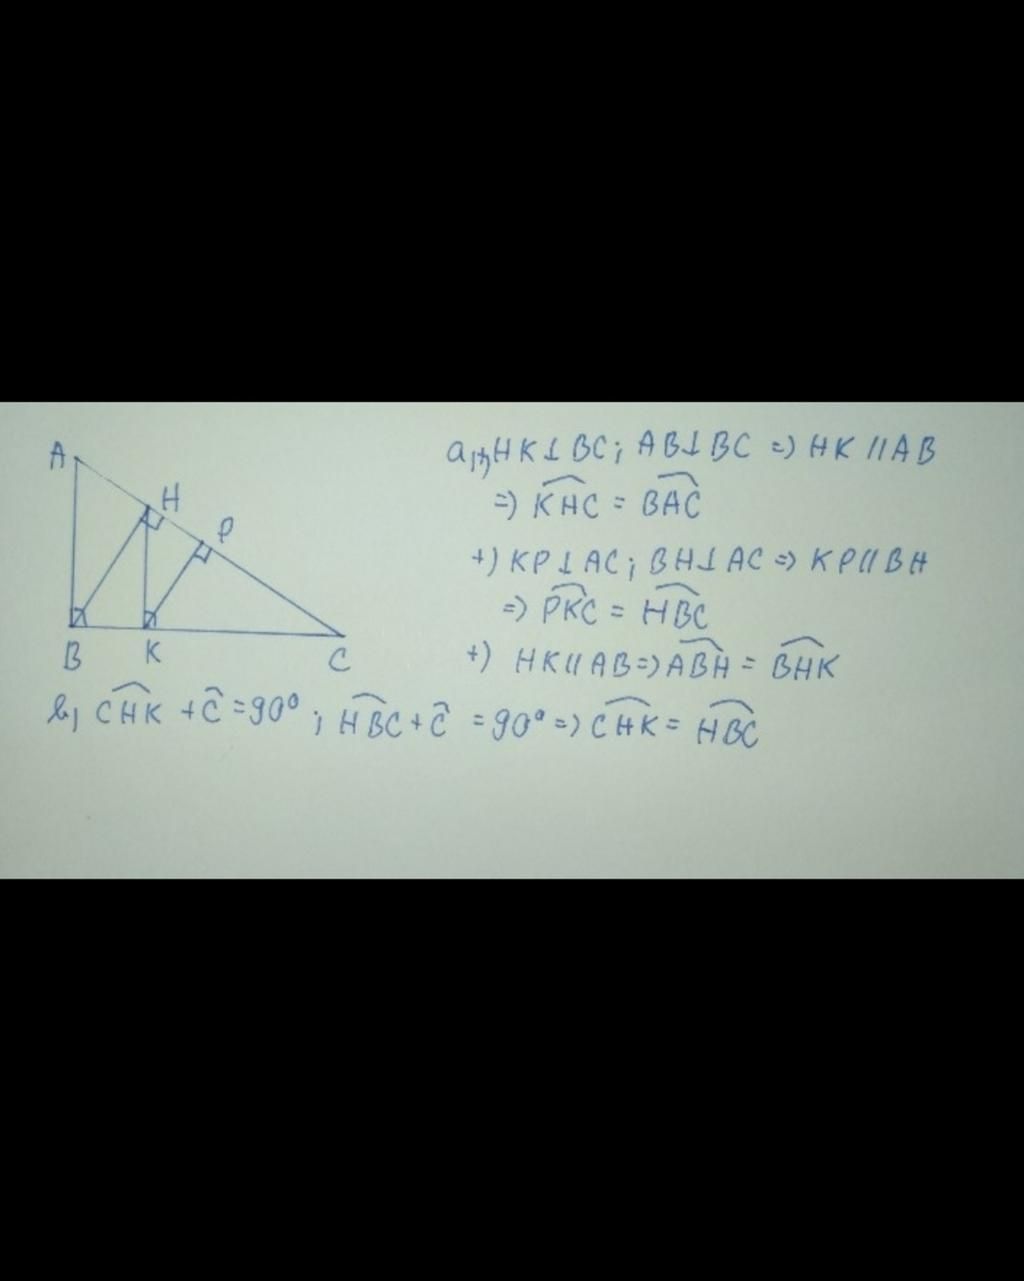 A
H
P
B
K
C
a, +) HK ⊥ BC; AB ⊥ BC => HK // AB
=> \widehat{KHC} = \widehat{BAC}
+) KP ⊥ AC; BH ⊥ AC => KP // BH
=> \widehat{PKC} = \widehat{HBC}
+) HK // AB => \widehat{ABH} = \widehat{BHK}
b, \widehat{CHK} + \widehat{C} = 90°; \widehat{HBC} + \widehat{C} = 90° => \widehat{CHK} = \widehat{HBC}